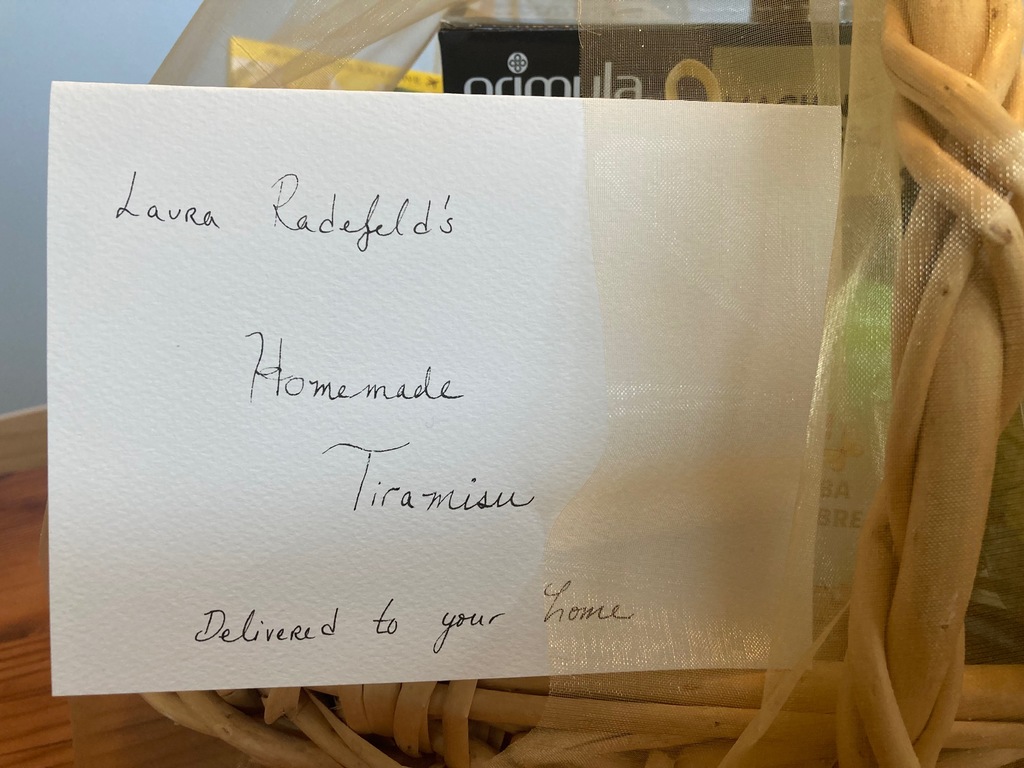 primula
Laura Radefeld's
Homemade
Tiramisu
Delivered to your home
BA
BRE